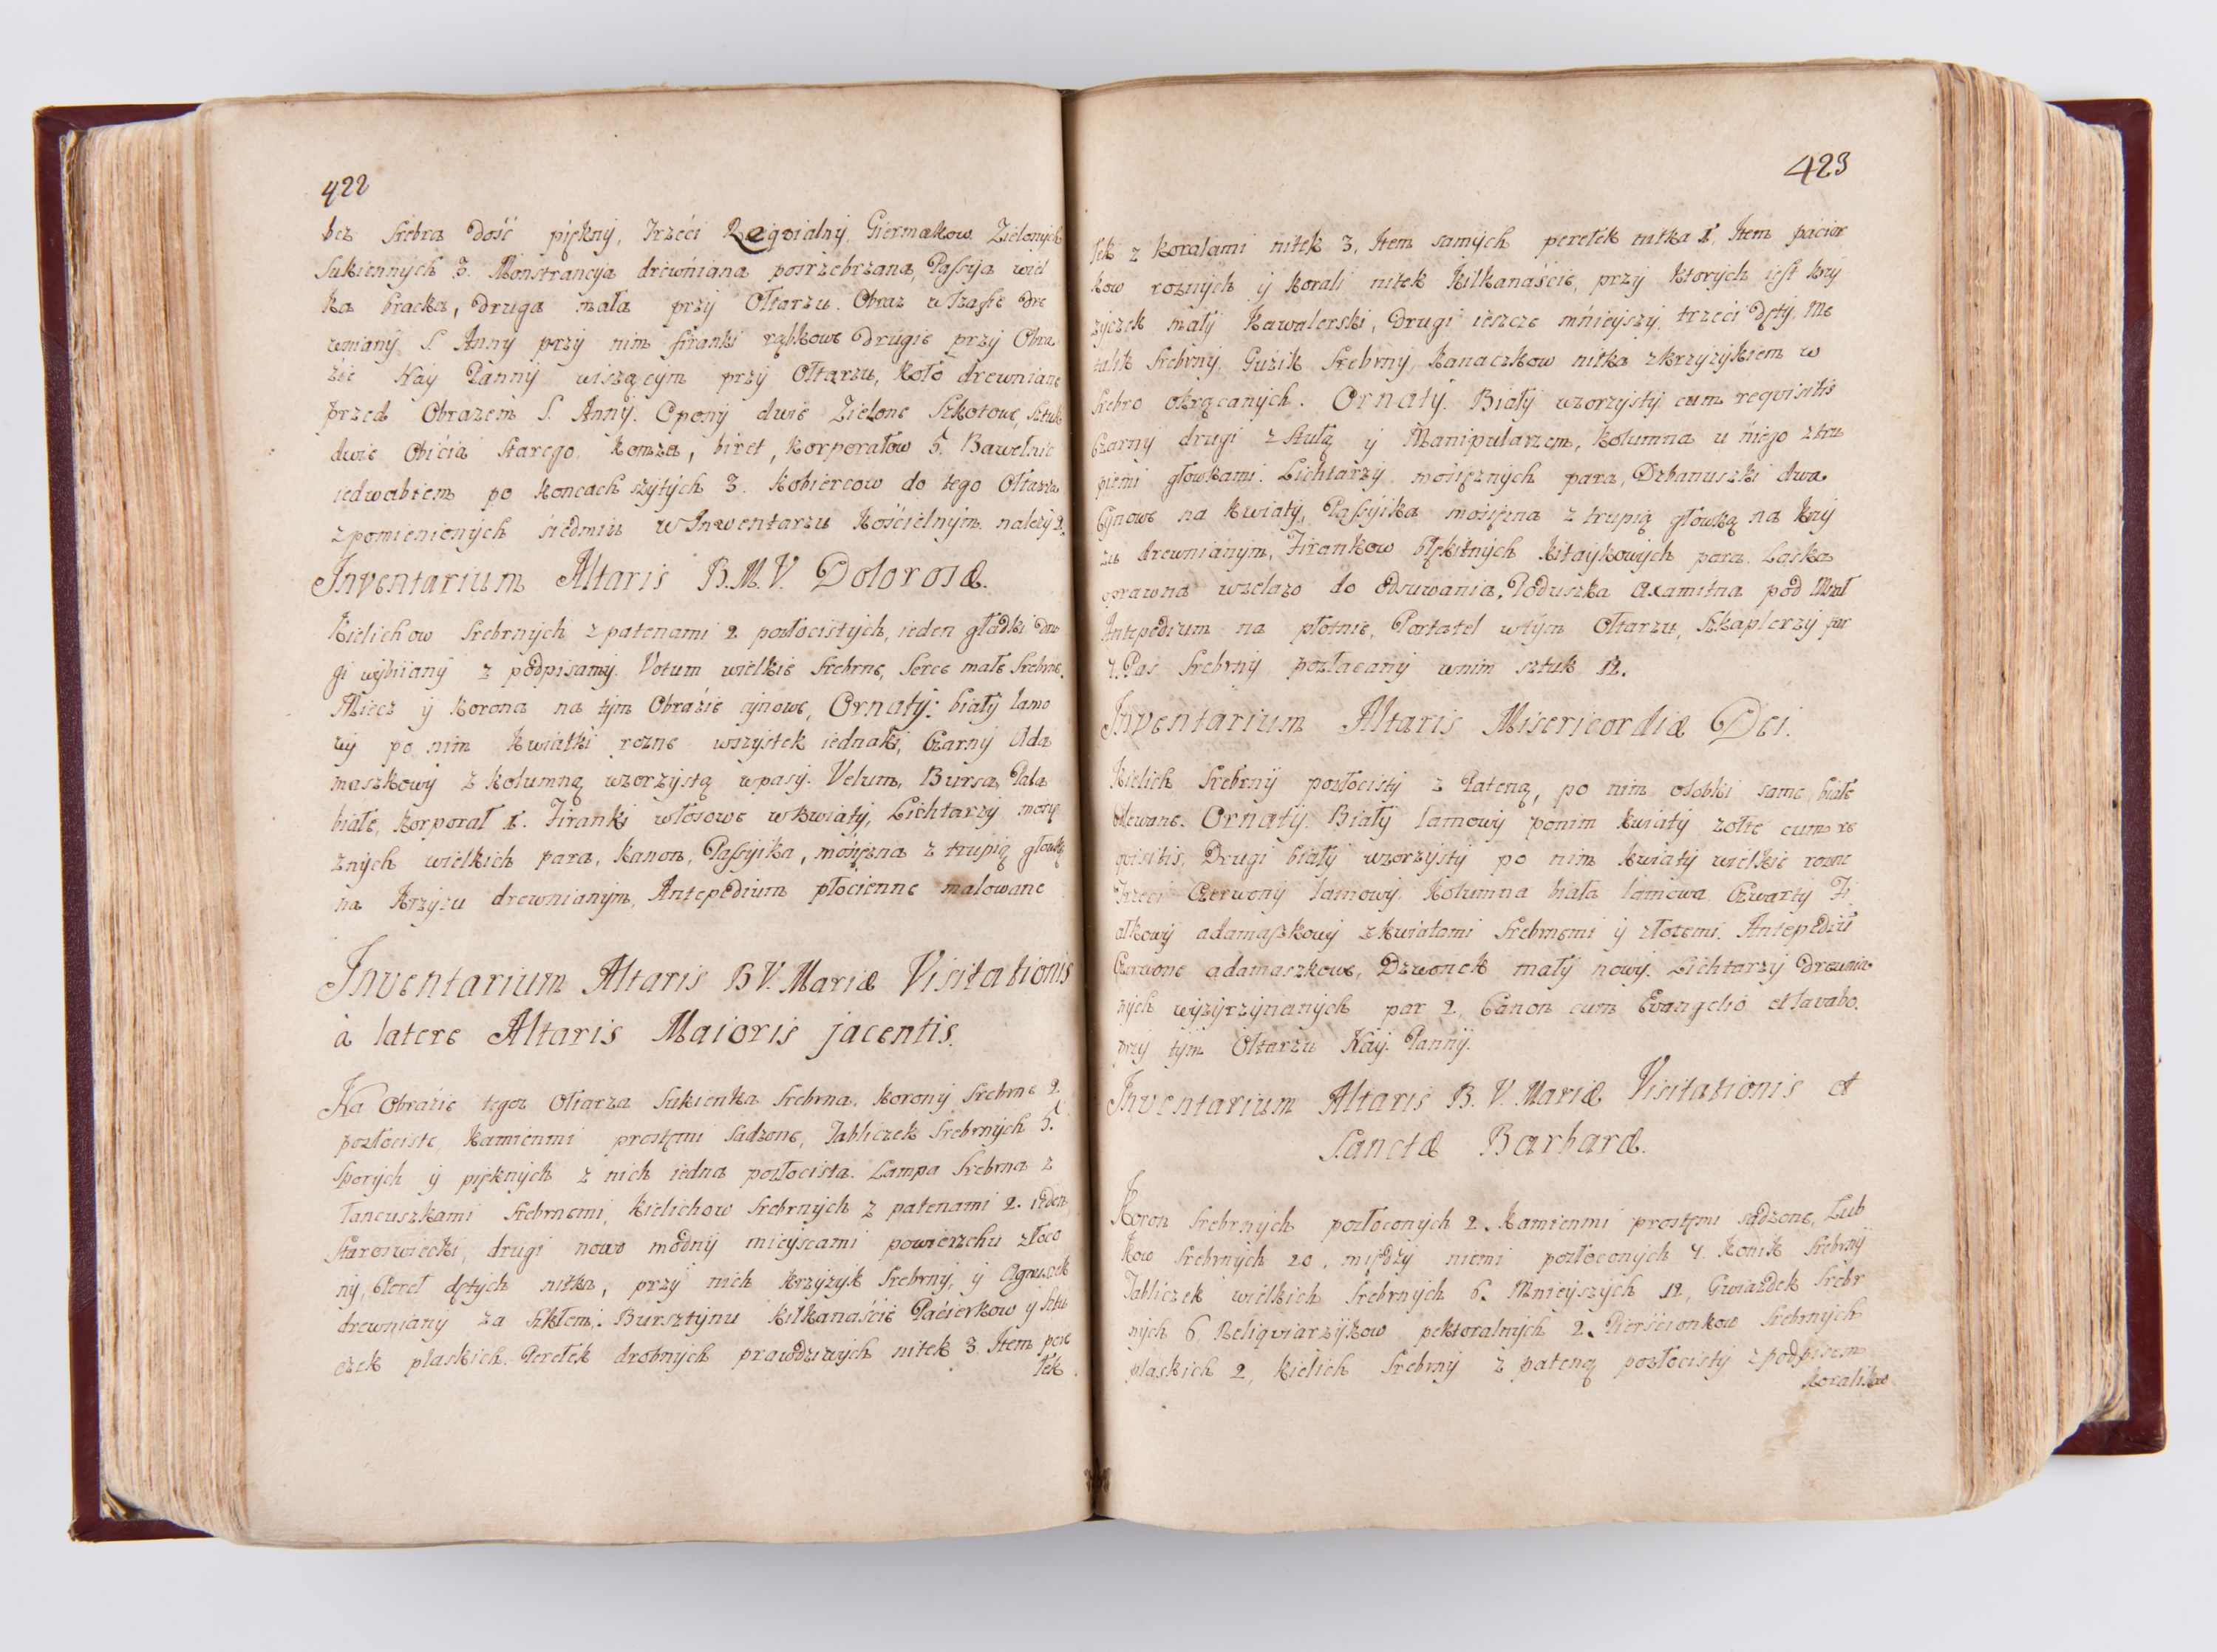 422
bez Srebra dość piękny, Trzeći Reqvialny, Giermakow Zielonych
Sukiennych 3. Monstrancyja drewniana posrzebrzana, Passyja wiel
ka bracka, druga mała przy Ołtarzu. Obraz w Szafie dre
wniany S Anny przy nim firanki rąbkowe Drugie przy Obra
zie Nay Panny wiszącym przy Ołtarzu, Koło drewniane
przed Obrazem S. Anny. Opony dwie Zielone Szkotowe, Sztuk
dwie Obicia Starego. Komza, biret, Korporałow 5. Bawełnic
iedwabiem po Koncach szytych 3. Kobiercow do tego Ołtarza
z pomienionych siedmiu w Inwentarzu Kościelnym należy 2.
Inventarium Altaris B.M.V. Dolorosæ.
Kielichow Srebrnych z patenami 2 pozłocistych, ieden gładki dru
gi wybiiany z podpisamy. Votum wielkie Srebrne, Serce małe Srebrne.
Miecz y Korona na tym Obrazie cynowe, Ornaty: biały lamo
wy po nim Kwiatki rozne wszystek iednaki, Czarny Ada
maszkowy z kolumną wzorzystą w pasy. Velum, Bursa, Pala
białe, Korporał 1. Firanki włosowe w Kwiaty, Lichtarzy mosię
znych wielkich para, Kanon, Passyika, mosiężna z trupią głowką
na Krzyżu drewnianym, Antepedium płocienne malowane
Inventarium Altaris B V. Mariæ Visitationis
à latere Altaris Maioris jacentis.
Na Obrazie tegoz Oltarza Sukienka Srebrna. Korony Srebrne 2.
pozłociste, Kamienmi prostęmi Sadzone, Tabliczek Srebrnych 5.
Sporych y pięknych z nich iedna pozłocista. Lampa Srebrna z
Łancuszkami Srebrnemi, Kielichow Srebrnych z patenami 2. ieden
Staroswiecki, drugi nowo modny mieyscami powierzchu złoco
ny, Pereł dętych nitka, przy nich Krzyzyk Srebrny, y Agnusek
drewniany za Szkłem. Bursztynu Kilkanaście Paćierkow y Sztu
czek płaskich. Perełek drobnych prawdziwych nitek 3. Item pere
łek
423
łek z Koralami nitek 3, Item samych perełek nitka 1, Item pacior
kow roznych y Korali nitek Kilkanaście, przy Ktorych iest Krzy
zyczek mały Kawalerski, Drugi ieszcze mnieyszy, trzeci Dęty, Me
talik Srebrny, Guzik Srebrny, Kanaczkow nitka z krzyzykiem w
Srebro okręcanych. Ornaty. Biały wzorzysty cum reqvisitis
Czarny drugi z Stułą y Manipularzem, Kolumna u niego z tru
piemi głowkami. Lichtarzy mosięznych para, Dzbanuszki dwa
Cynowe na Kwiaty, Passyika mosięzna z trupią głowką na Krzy
zu drewnianym, Firankow błękitnych kitaykowych para. Laska
oprawna w zelazo do Odsuwania. Poduszka Axamitna pod Mszał
Antepedium na płotnie, Portatel w tym Ołtarzu, Szkaplerzy par
4. Pas Srebrny pozłacany w nim sztuk 12.
Inventarium Altaris Misericordiæ Dei.
Kielich Srebrny pozłocisty z Pateną, po nim osobki same białe
Odlewane. Ornaty. Biały lamowy ponim Kwiaty zołte cum re
qvisitis, Drugi biały wzorzysty po nim Kwiaty wielkie rozne
Trzeci Czerwony lamowy, Kolumna biała lamowa Czwarty Fi
ałkowy adamaszkowy z kwiatami Srebrnemi y złotemi. Antepediū
Czerwone adamaszkowe, Dzwonek mały nowy. Lichtarzy Drewnia
nych wyzyrzynanych par 2, Canon cum Evangelio et lavabo.
przy tym Oltarzu Nay. Panny.
Inventarium Altaris B. V. Mariæ Visitationis et
Sanctæ Barbaræ.
Koron Srebrnych pozłoconych 2. Kamienmi prostęmi sadzone, Lub
kow Srebrnych 20, między niemi pozłoconych 4. Konik Srebrny
Tabliczek wielkich Srebrnych 6. Mnieyszych 12, Gwiazdek Srebr
nych 6. Reliqviarzykow pektoralnych 2. Pierscionkow Srebrnych
płaskich 2, Kielich Srebrny z pateną pozłocisty z podpisem
Koralikow